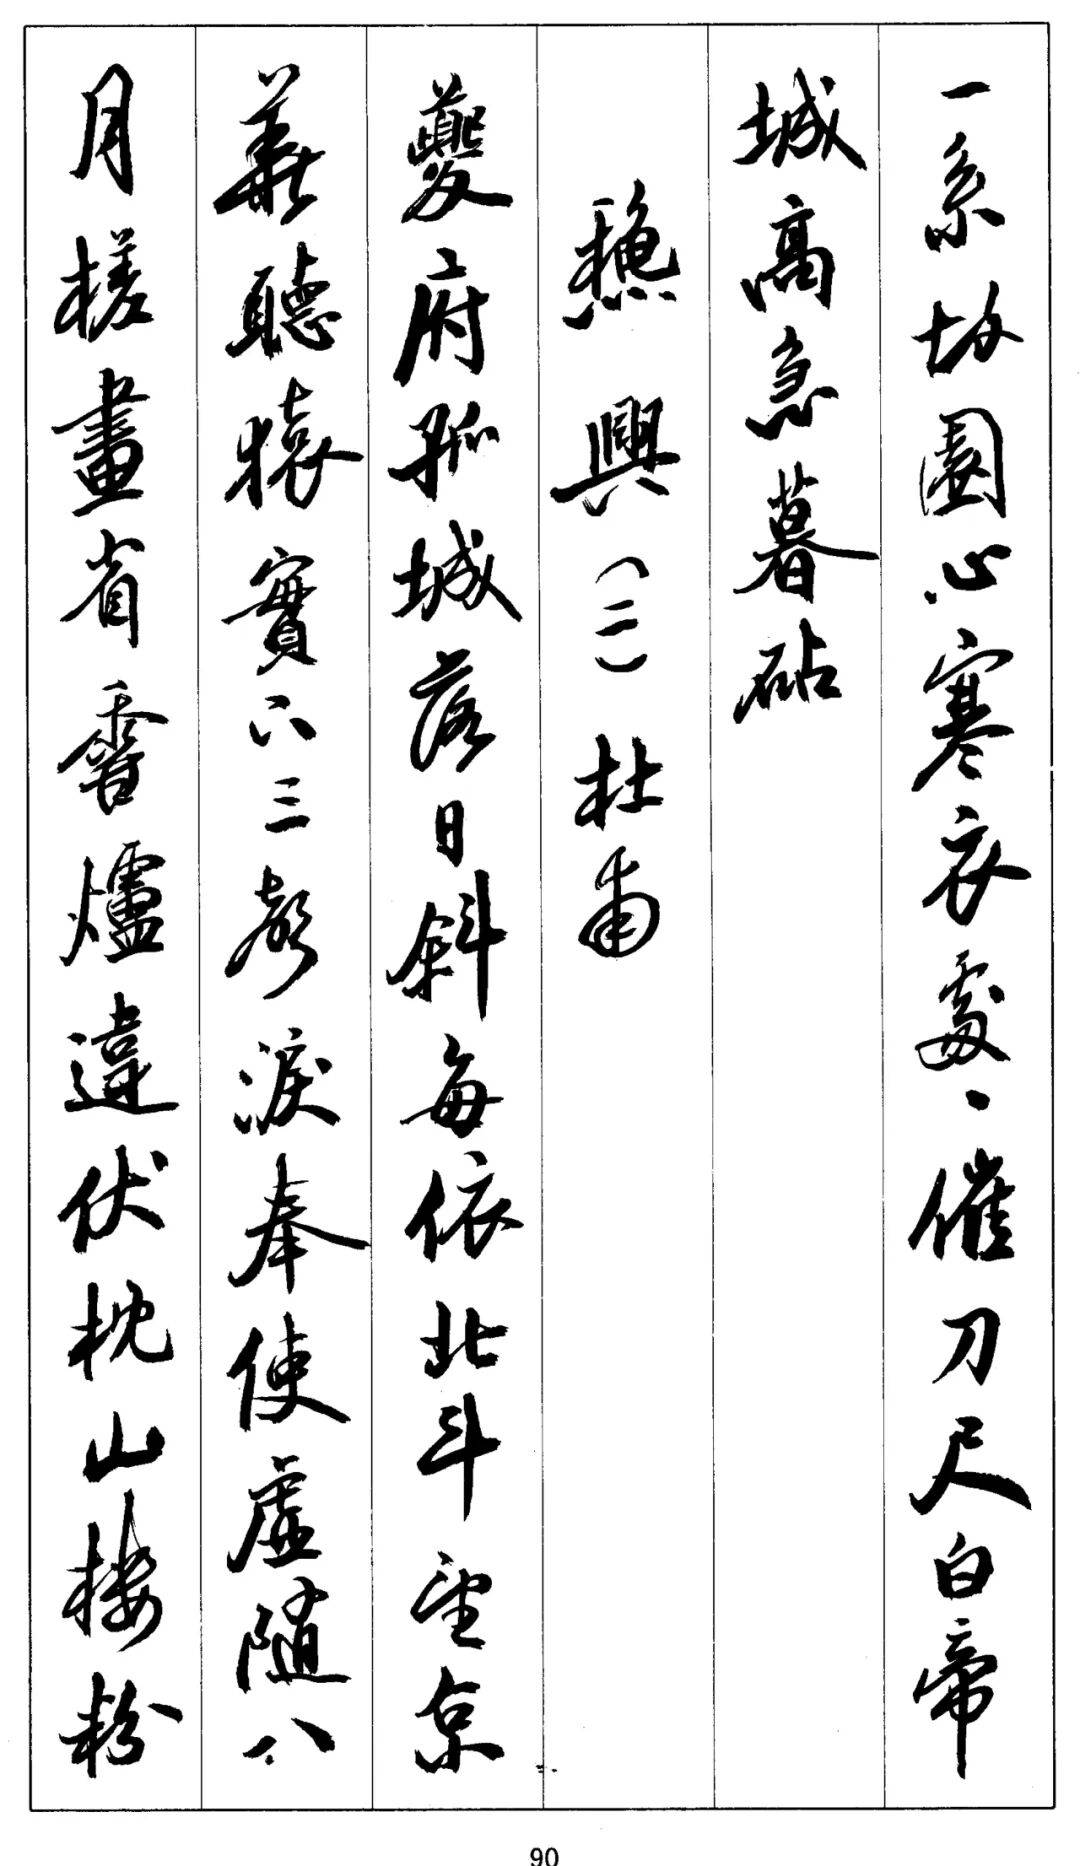 一系故園心寒衣處、催刀尺白帝
城高急暮砧
穐興（二）杜甫
夔府孤城落日斜每依北斗望京
華聽猿實下三聲淚奉使虛隨八
月槎畫省香爐違伏枕山樓粉
90